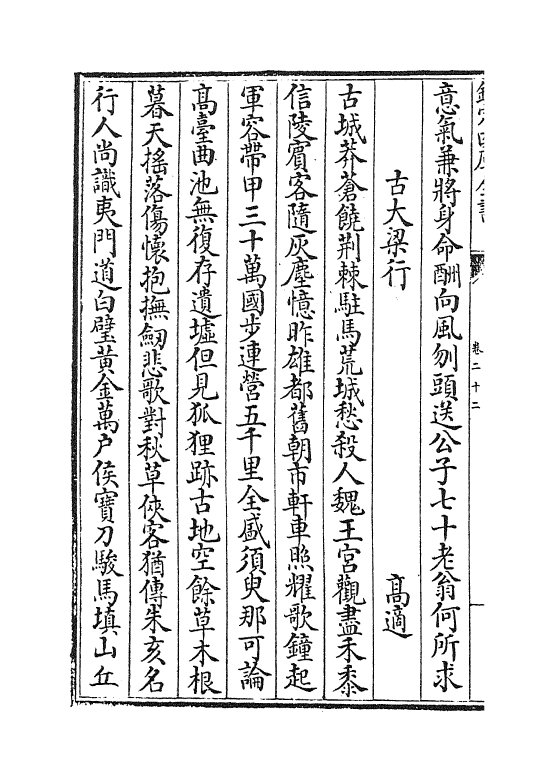 意氣兼將身命酬向風刎頭送公子七十老翁何所求
古大梁行　　　　　　　　髙適
古城莽蒼饒荆棘駐馬荒城愁殺人魏王宮觀盡禾黍
信陵賓客隨灰塵憶昨雄都舊朝市軒車照耀歌鐘起
軍容帶甲三十萬國步連營五千里全盛須臾那可論
髙臺曲池無復存遺墟但見狐狸跡古地空餘草木根
暮天摇落傷懷抱撫劒悲歌對秋草俠客猶傳朱亥名
行人尚識夷門道白璧黄金萬户侯寳刀駿馬填山丘
卷二十二